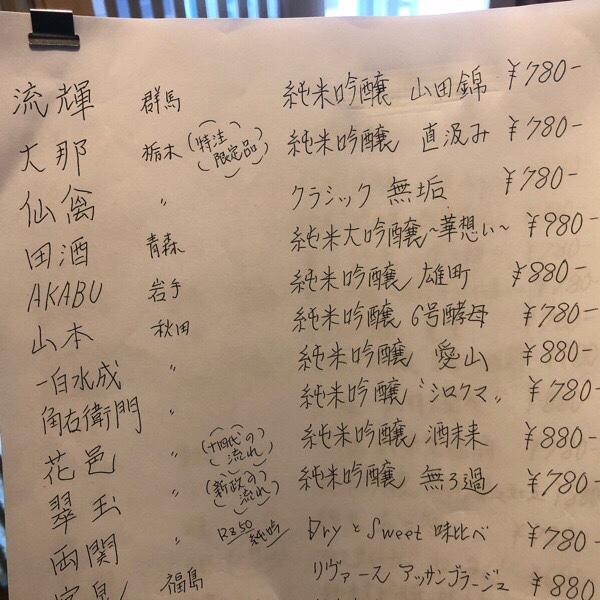 流輝 群馬 純米吟醸 山田錦 ¥780-
大那 栃木 (特注限定品) 純米吟醸 直汲み ¥780-
仙禽 〃 クラシック 無垢 ¥780-
田酒 青森 純米大吟醸~華想い~ ¥980-
AKABU 岩手 純米吟醸 雄町 ¥880-
山本 秋田 純米吟醸 6号酵母 ¥780-
一白水成 〃 純米吟醸 愛山 ¥880-
角右衛門 〃 純米吟醸 "シロクマ" ¥780-
花邑 〃 (十四代の流れ) 純米吟醸 酒未来 ¥880-
翠玉 〃 (新政の流れ) 純米吟醸 無ろ過 ¥780-
両関 〃 R250 純吟 Dry と Sweet 味比べ ¥780-
福島 リヴァース アッサンブラージュ ¥880